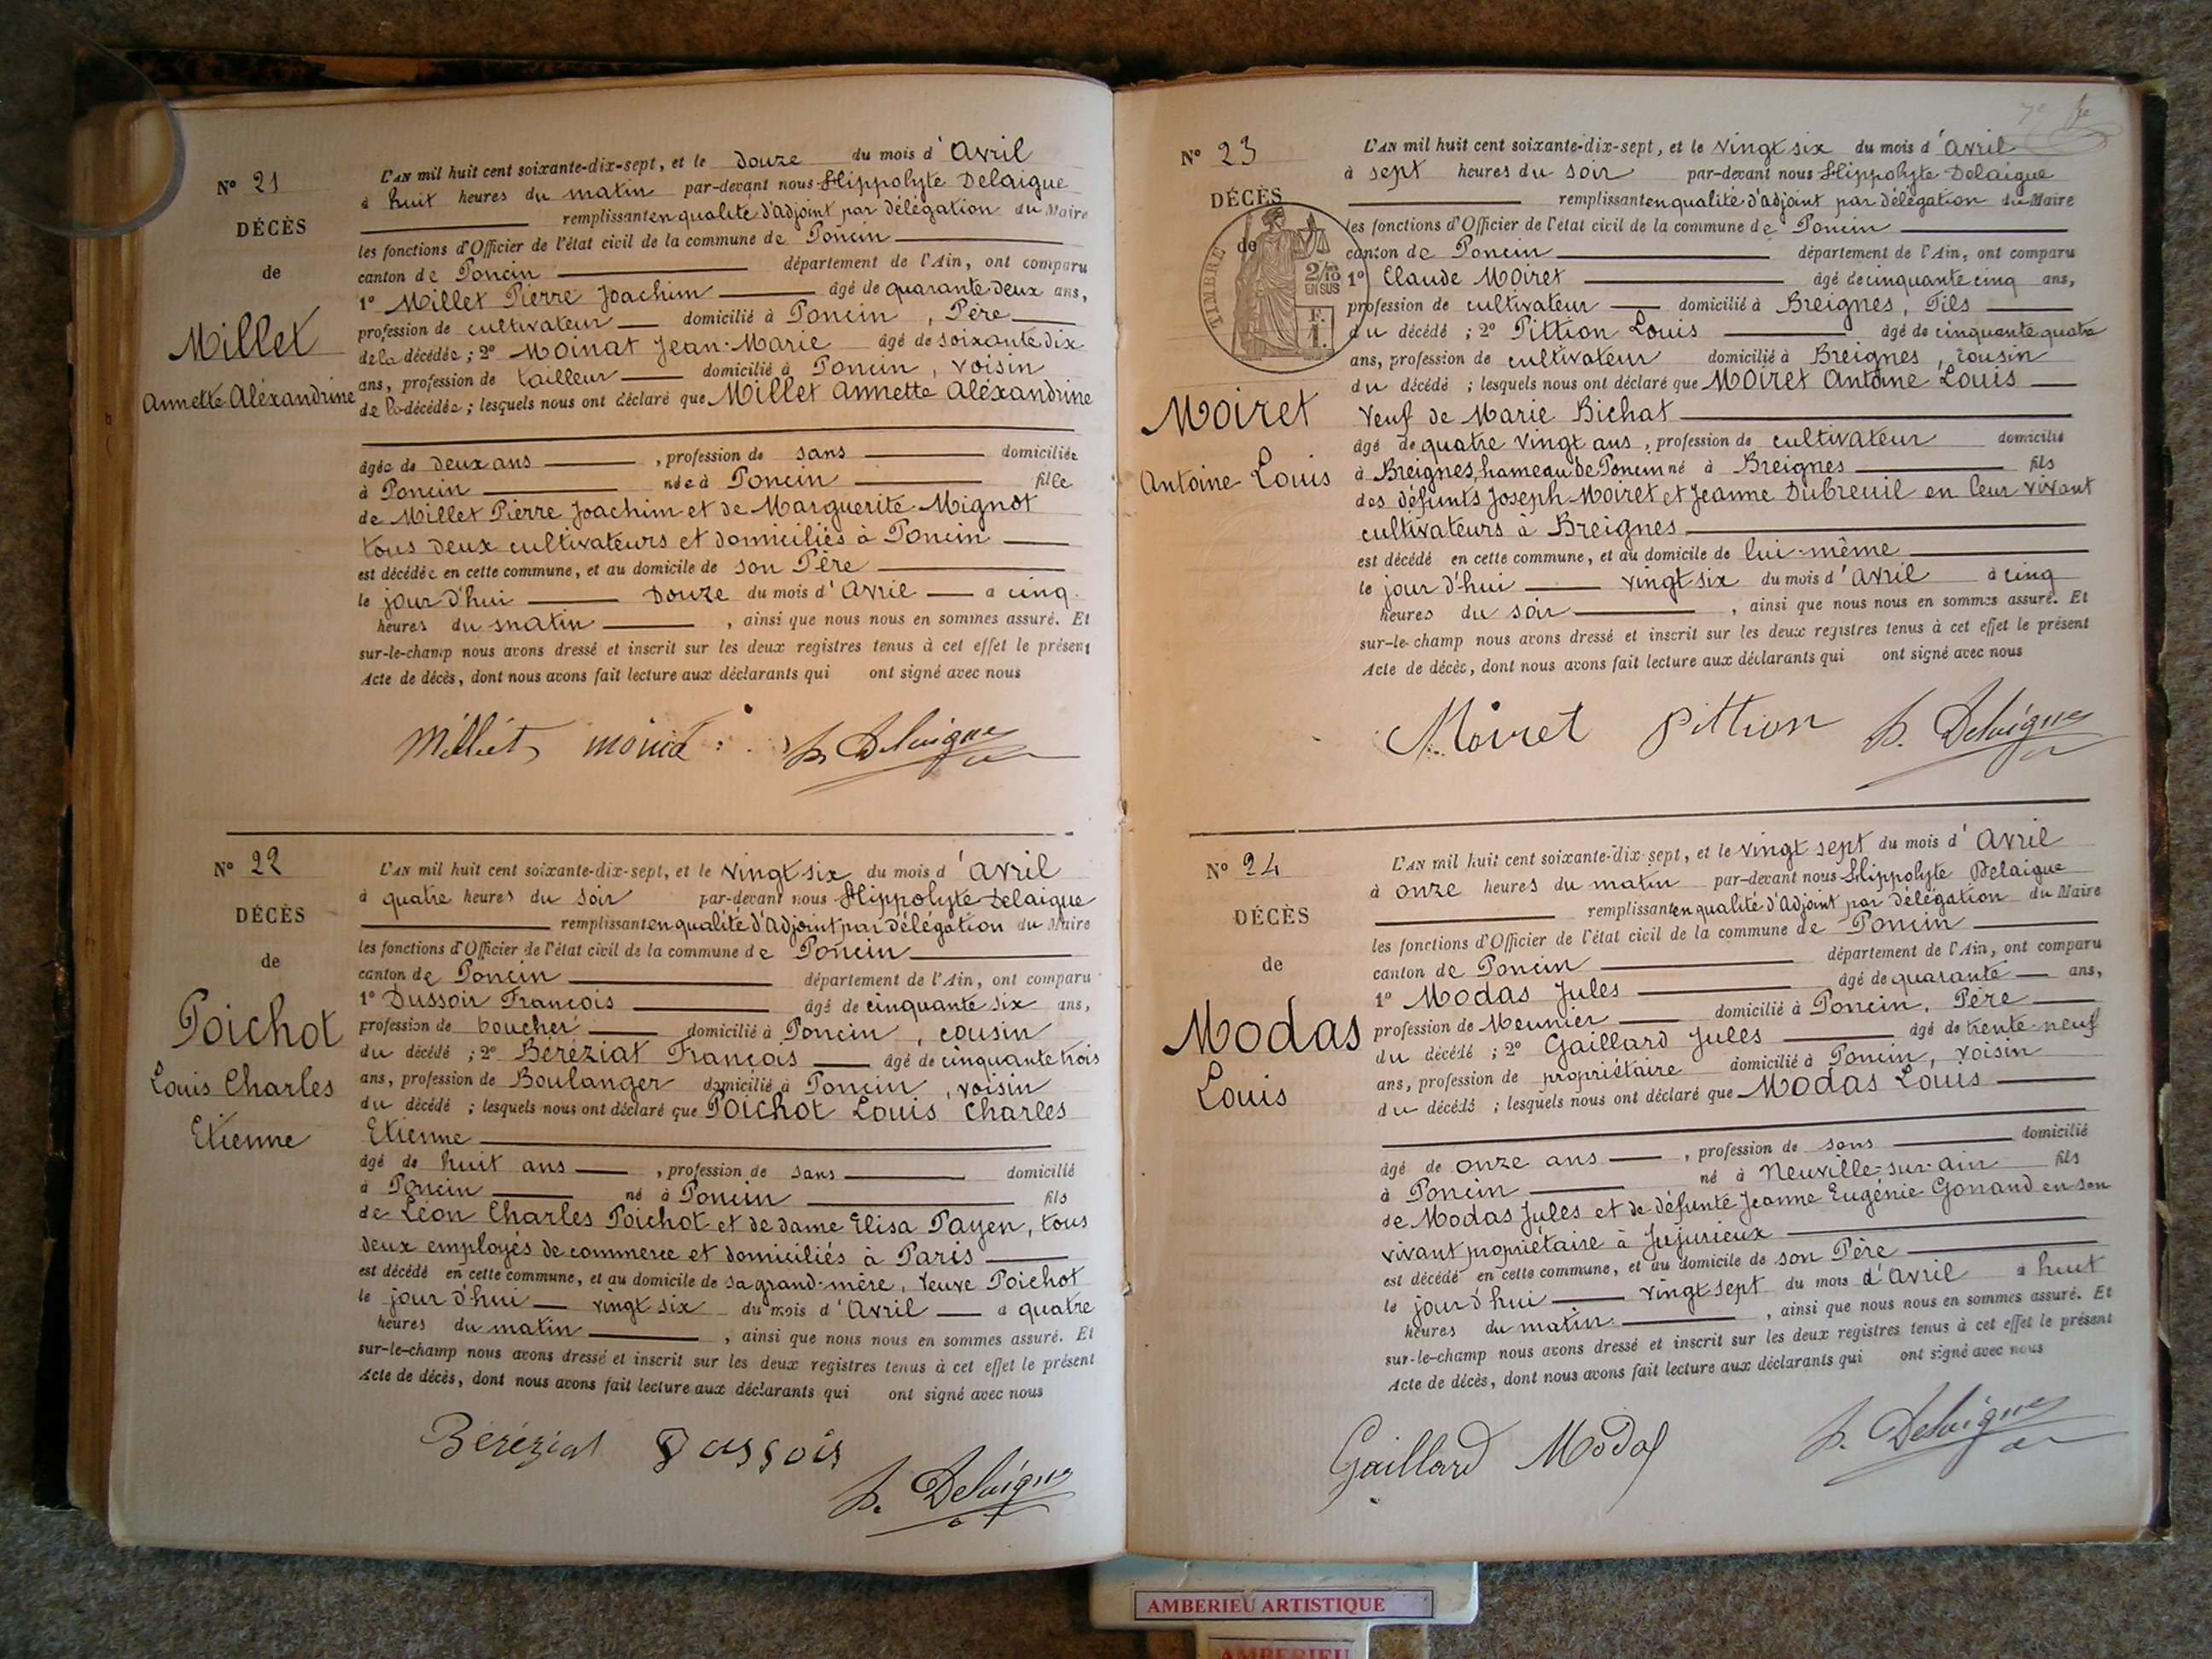 N° 21
DÉCÈS
de
Millet
Annette Aléxandrine
L'AN mil huit cent soixante-dix-sept, et le douze du mois d'Avril
à huit heures du matin par-devant nous Hippolyte Delaigue
remplissant en qualité d'adjoint par délégation du Maire
les fonctions d'Officier de l'état civil de la commune de Poncin
canton de Poncin département de l'Ain, ont comparu
1° Millet Pierre Joachim âgé de quarante deux ans,
profession de cultivateur domicilié à Poncin, Père
de la décédée ; 2° Moinat Jean-Marie âgé de soixante dix
ans, profession de tailleur domicilié à Poncin, voisin
de la décédée ; lesquels nous ont déclaré que Millet Annette Aléxandrine
âgée de deux ans, profession de sans domiciliée
à Poncin née à Poncin fille
de Millet Pierre Joachim et de Marguerite Mignot
tous deux cultivateurs et domiciliés à Poncin
est décédée en cette commune, et au domicile de son Père
le jour d'hui douze du mois d'Avril à cinq
heures du matin, ainsi que nous nous en sommes assuré. Et
sur-le-champ nous avons dressé et inscrit sur les deux registres tenus à cet effet le présent
Acte de décès, dont nous avons fait lecture aux déclarants qui ont signé avec nous
Millet H. Delaigue
N° 22
DÉCÈS
de
Poichot
Louis Charles
Etienne
L'AN mil huit cent soixante-dix-sept, et le vingt six du mois d'Avril
à quatre heures du soir par-devant nous Hippolyte Delaigue
remplissant en qualité d'Adjoint par délégation du Maire
les fonctions d'Officier de l'état civil de la commune de Poncin
canton de Poncin département de l'Ain, ont comparu
1° Dussoir François âgé de cinquante six ans,
profession de boucher domicilié à Poncin, cousin
du décédé ; 2° Béréziat François âgé de cinquante trois
ans, profession de Boulanger domicilié à Poncin, voisin
du décédé ; lesquels nous ont déclaré que Poichot Louis Charles
Etienne
âgé de huit ans, profession de sans domicilié
à Poncin né à Poncin fils
de Léon Charles Poichot et de dame Elisa Payen, tous
deux employés de commerce et domiciliés à Paris
est décédé en cette commune, et au domicile de sa grand-mère, Veuve Poichot
le jour d'hui vingt six du mois d'Avril à quatre
heures du matin, ainsi que nous nous en sommes assuré. Et
sur-le-champ nous avons dressé et inscrit sur les deux registres tenus à cet effet le présent
Acte de décès, dont nous avons fait lecture aux déclarants qui ont signé avec nous
Béréziat Dussoir
H. Delaigue
N° 23
DÉCÈS
de
TIMBRE
2/10
EN SUS
F.
1.
Moiret
Antoine Louis
L'AN mil huit cent soixante-dix-sept, et le vingt six du mois d'Avril
à sept heures du soir par-devant nous Hippolyte Delaigue
remplissant en qualité d'adjoint par délégation du Maire
les fonctions d'Officier de l'état civil de la commune de Poncin
canton de Poncin département de l'Ain, ont comparu
1° Claude Moiret âgé de cinquante cinq ans,
profession de cultivateur domicilié à Breignes, Fils
du décédé ; 2° Pittion Louis âgé de cinquante quatre
ans, profession de cultivateur domicilié à Breignes, cousin
du décédé ; lesquels nous ont déclaré que Moiret Antoine Louis
Veuf de Marie Bichat
âgé de quatre vingt ans, profession de cultivateur domicilié
à Breignes, hameau de Poncin né à Breignes fils
des défunts Joseph Moiret et Jeanne Dubreuil en leur vivant
cultivateurs à Breignes
est décédé en cette commune, et au domicile de lui-même
le jour d'hui vingt six du mois d'Avril à cinq
heures du soir, ainsi que nous nous en sommes assuré. Et
sur-le-champ nous avons dressé et inscrit sur les deux registres tenus à cet effet le présent
Acte de décès, dont nous avons fait lecture aux déclarants qui ont signé avec nous
Moiret Pittion H. Delaigue
N° 24
DÉCÈS
de
Modas
Louis
L'AN mil huit cent soixante-dix-sept, et le vingt sept du mois d'Avril
à onze heures du matin par-devant nous Hippolyte Delaigue
remplissant en qualité d'Adjoint par délégation du Maire
les fonctions d'Officier de l'état civil de la commune de Poncin
canton de Poncin département de l'Ain, ont comparu
1° Modas Jules âgé de quarante ans,
profession de Meunier domicilié à Poncin, Père
du décédé ; 2° Gaillard Jules âgé de trente-neuf
ans, profession de propriétaire domicilié à Poncin, voisin
du décédé ; lesquels nous ont déclaré que Modas Louis
âgé de onze ans, profession de sans domicilié
à Poncin né à Neuville-sur-ain fils
de Modas Jules et de défunte Jeanne Eugénie Gonand en son
vivant propriétaire à Jujurieux
est décédé en cette commune, et au domicile de son Père
le jour d'hui vingt sept du mois d'Avril à huit
heures du matin, ainsi que nous nous en sommes assuré. Et
sur-le-champ nous avons dressé et inscrit sur les deux registres tenus à cet effet le présent
Acte de décès, dont nous avons fait lecture aux déclarants qui ont signé avec nous
Gaillard Modas H. Delaigue
AMBERIEU ARTISTIQUE
AMBERIEU